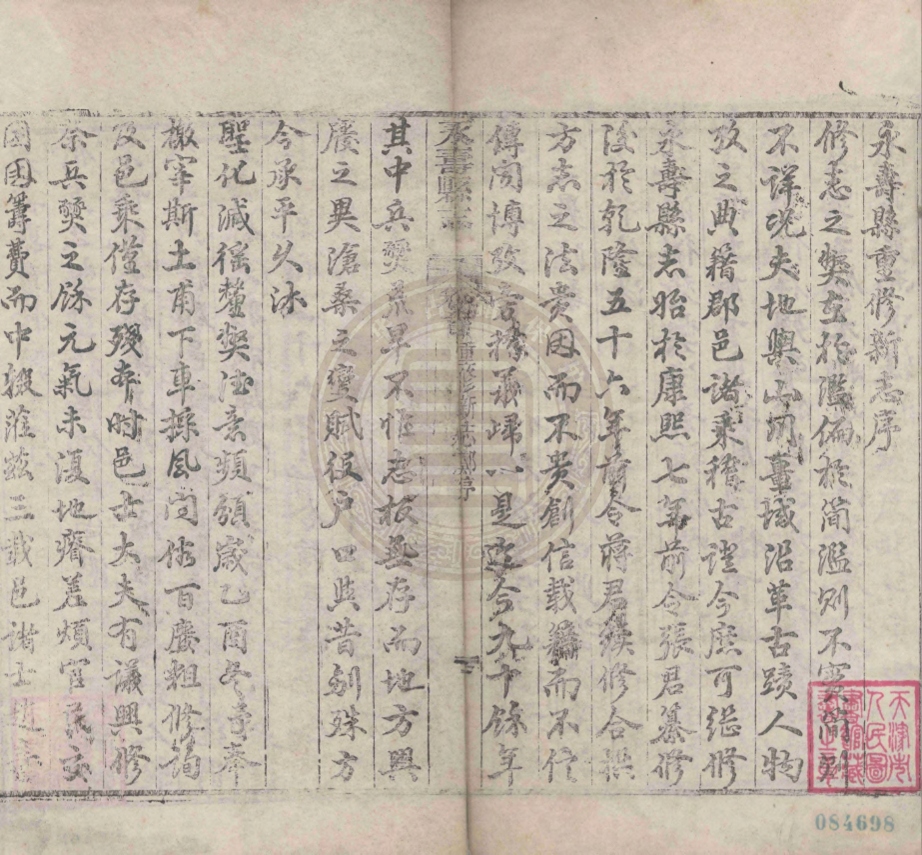 永壽縣重修新志序
修志之獎在於濫偏於簡濫則不實簡則
不詳況夫地輿山川畺域沿革古蹟人物
攷之典籍郡邑諸乘稽古證今庶可繼修
永壽縣志昉於康熙七年前令張君纂修
後於乾隆五十六年前令蔣君續修合拱
方志之法貴因而不貴創信載籍而不信
傳聞博攷言據義歸一是迄今九十餘年
永壽縣志 重修新志序
其中兵燹荒旱不惟志板無存而地方興
廢之異滄桑之變賦役戶口與昔判殊方
今承平久沐
聖化減徭釐獘德意頻頒歲乙酉冬奉
檄宰斯土甫下車採風問俗百廢粗修詢
及邑乘僅存殘本時邑士大夫有議興修
奈兵燹之餘元氣未復地瘠差煩官民交
困因籌費而中輟蒞茲三載邑諸士
天津市人民圖書館藏書之章
084698